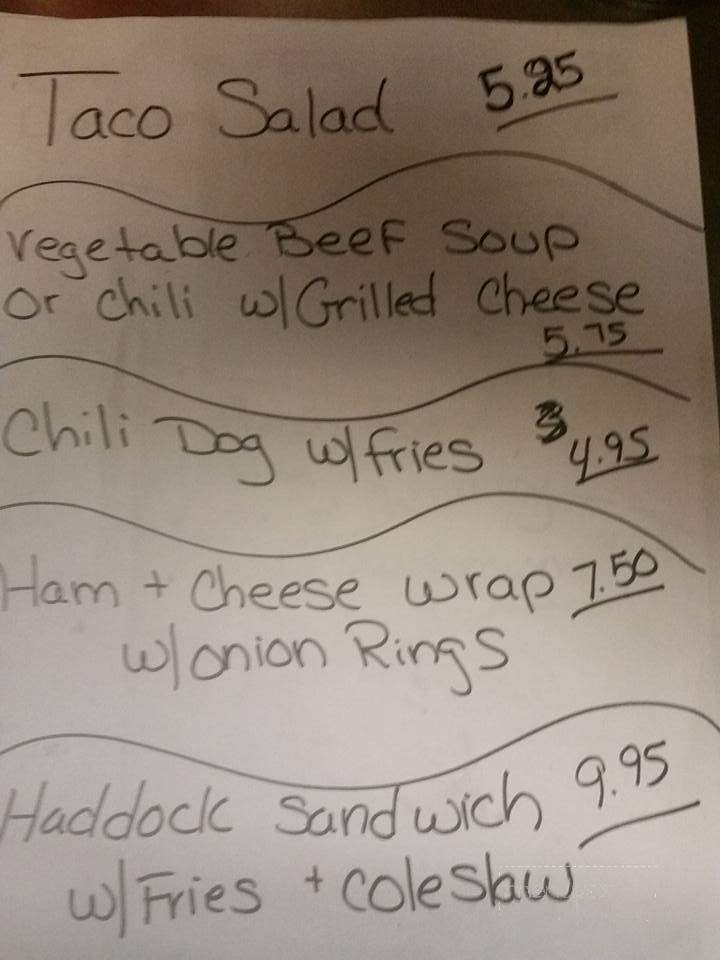 Taco Salad 5.25
Vegetable Beef Soup
or chili w/Grilled Cheese
5.75
Chili Dog w/fries 4.95
Ham + Cheese wrap 7.50
w/onion Rings
Haddock Sandwich 9.95
w/Fries + coleslaw